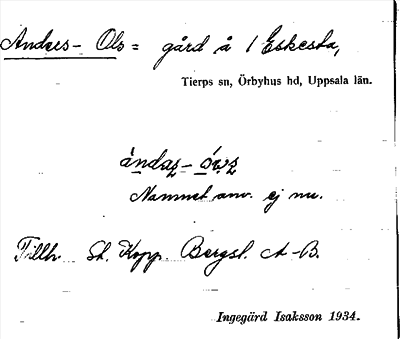 Anders-Ols = gård å 1 Eskesta,
Tierps sn, Örbyhus hd, Uppsala län.
ándaʂ-óu̯ʂ
Namnet anv. ej nu.
Tillh. St. Kopp. Bergsl. A-B.
Ingegärd Isaksson 1934.